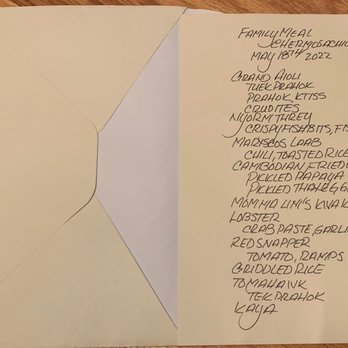 FAMILY MEAL
SCHERMOSACHIC
MAY 18TH 2022
GRAND AIOLI
TUEK PRAHOK
PRAHOK KTISS
CRUDITES
NYORM THREY
CRISPY FISH BITS, FIS
MARISCOS LAAB
CHILI, TOASTED RICE
CAMBODIAN FRIED
PICKLED PAPAYA
PICKLED THAI EGG
MOMMA LIM'S KVAK
LOBSTER
CRAB PASTE, GARLI
RED SNAPPER
TOMATO, RAMPS
GRIDDLED RICE
TOMAHAWK
TEK PRAHOK
KAYA